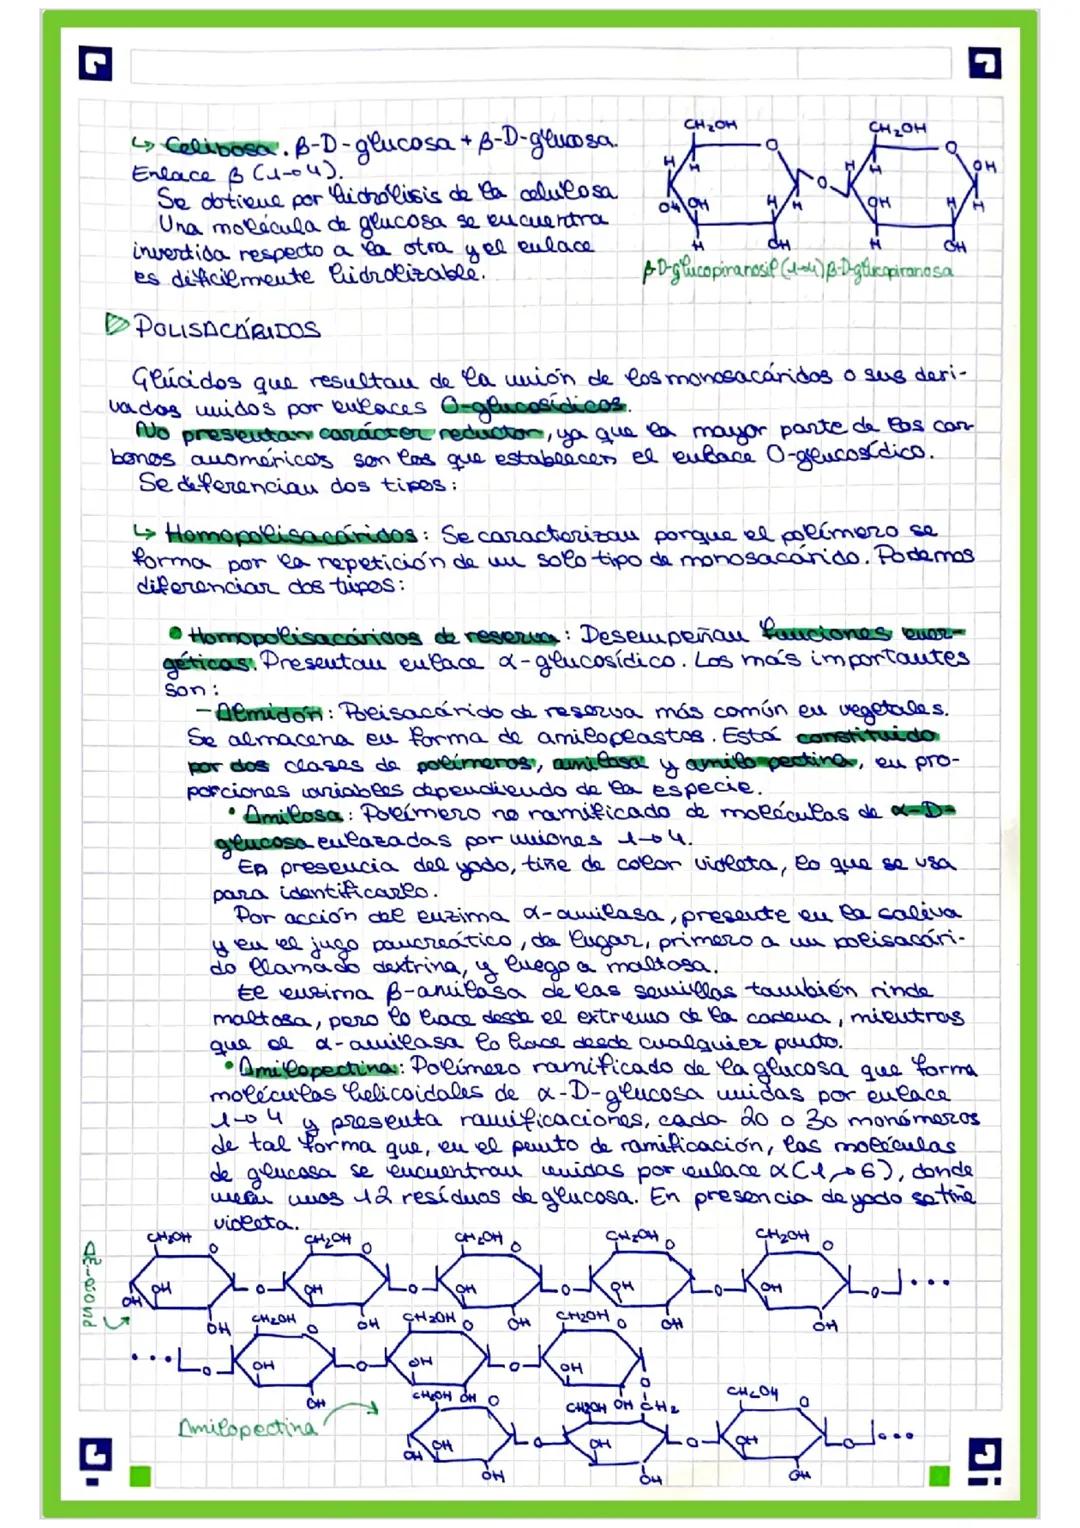 ↳ Celibosa. β-D-glucosa + β-D-glucosa.
Enlace β (1→4).
Se obtiene por hidrólisis de la celulosa
Una molécula de glucosa se encuentra
invertida respecto a la otra y el enlace
es dificilmente hidrolizable.
CH₂OH CH₂OH
O O
H H H H OH
O
OH OH H H OH H H
H OH H OH
β-D-glucopiranosil (1→4) β-D-glucopiranosa
POLISACÁRIDOS
Glúcidos que resultan de la unión de los monosacáridos o sus deri-
vados unidos por enlaces O-glucosídicos.
No presentan carácter reductor, ya que la mayor parte de los car-
bonos anoméricos son los que establecen el enlace O-glucosídico.
Se diferencian dos tipos:
↳ Homopolisacáridos: Se caracterizan porque el polímero se
forma por la repetición de un solo tipo de monosacárido. Podemos
diferenciar dos tipos:
• Homopolisacáridos de reserva: Desempeñan funciones ener-
géticas. Presentan enlace α-glucosídico. Los más importantes
son:
- Almidón: Polisacárido de reserva más común en vegetales.
Se almacena en forma de amiloplastos. Está constituido
por dos clases de polímeros, amilasa y amilopectina, en pro-
porciones variables dependiendo de la especie.
• Amilosa: Polímero no ramificado de moléculas de α-D-
glucosa enlazadas por uniones 1→4.
En presencia del yodo, tiñe de color violeta, lo que se usa
para identificarlo.
Por acción del enzima α-amilasa, presente en la saliva
y en el jugo pancreático, da lugar, primero a un polisacári-
do llamado dextrina, y luego a maltosa.
El enzima β-amilasa de las semillas también rinde
maltosa, pero lo hace desde el extremo de la cadena, mientras
que el α-amilasa lo hace desde cualquier punto.
• Amilopectina: Polímero ramificado de la glucosa que forma
moléculas helicoidales de α-D-glucosa unidas por enlace
1→4 y presenta ramificaciones, cada 20 o 30 monómeros
de tal forma que, en el punto de ramificación, las moléculas
de glucosa se encuentran unidas por enlace α(1→6), donde
unos 12 resíduos de glucosa. En presencia de yodo se tiñe
violeta.
CH₂OH CH₂OH CH₂OH CH₂OH CH₂OH
O O O O O
OH OH OH OH OH OH
O O O O O ...
OH OH OH OH OH
CH₂OH CH₂OH CH₂OH
O O O
... O OH O OH O OH O
OH OH OH CH₂
CH₂OH CH₂OH CH₂OH
O O
Amilopectina
OH OH O OH O OH O ...
OH OH OH